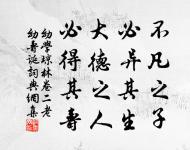 不凡之子
必异其生
大德之人
必得其壽
幼學琼林卷二老
幼壽誕詞典網集